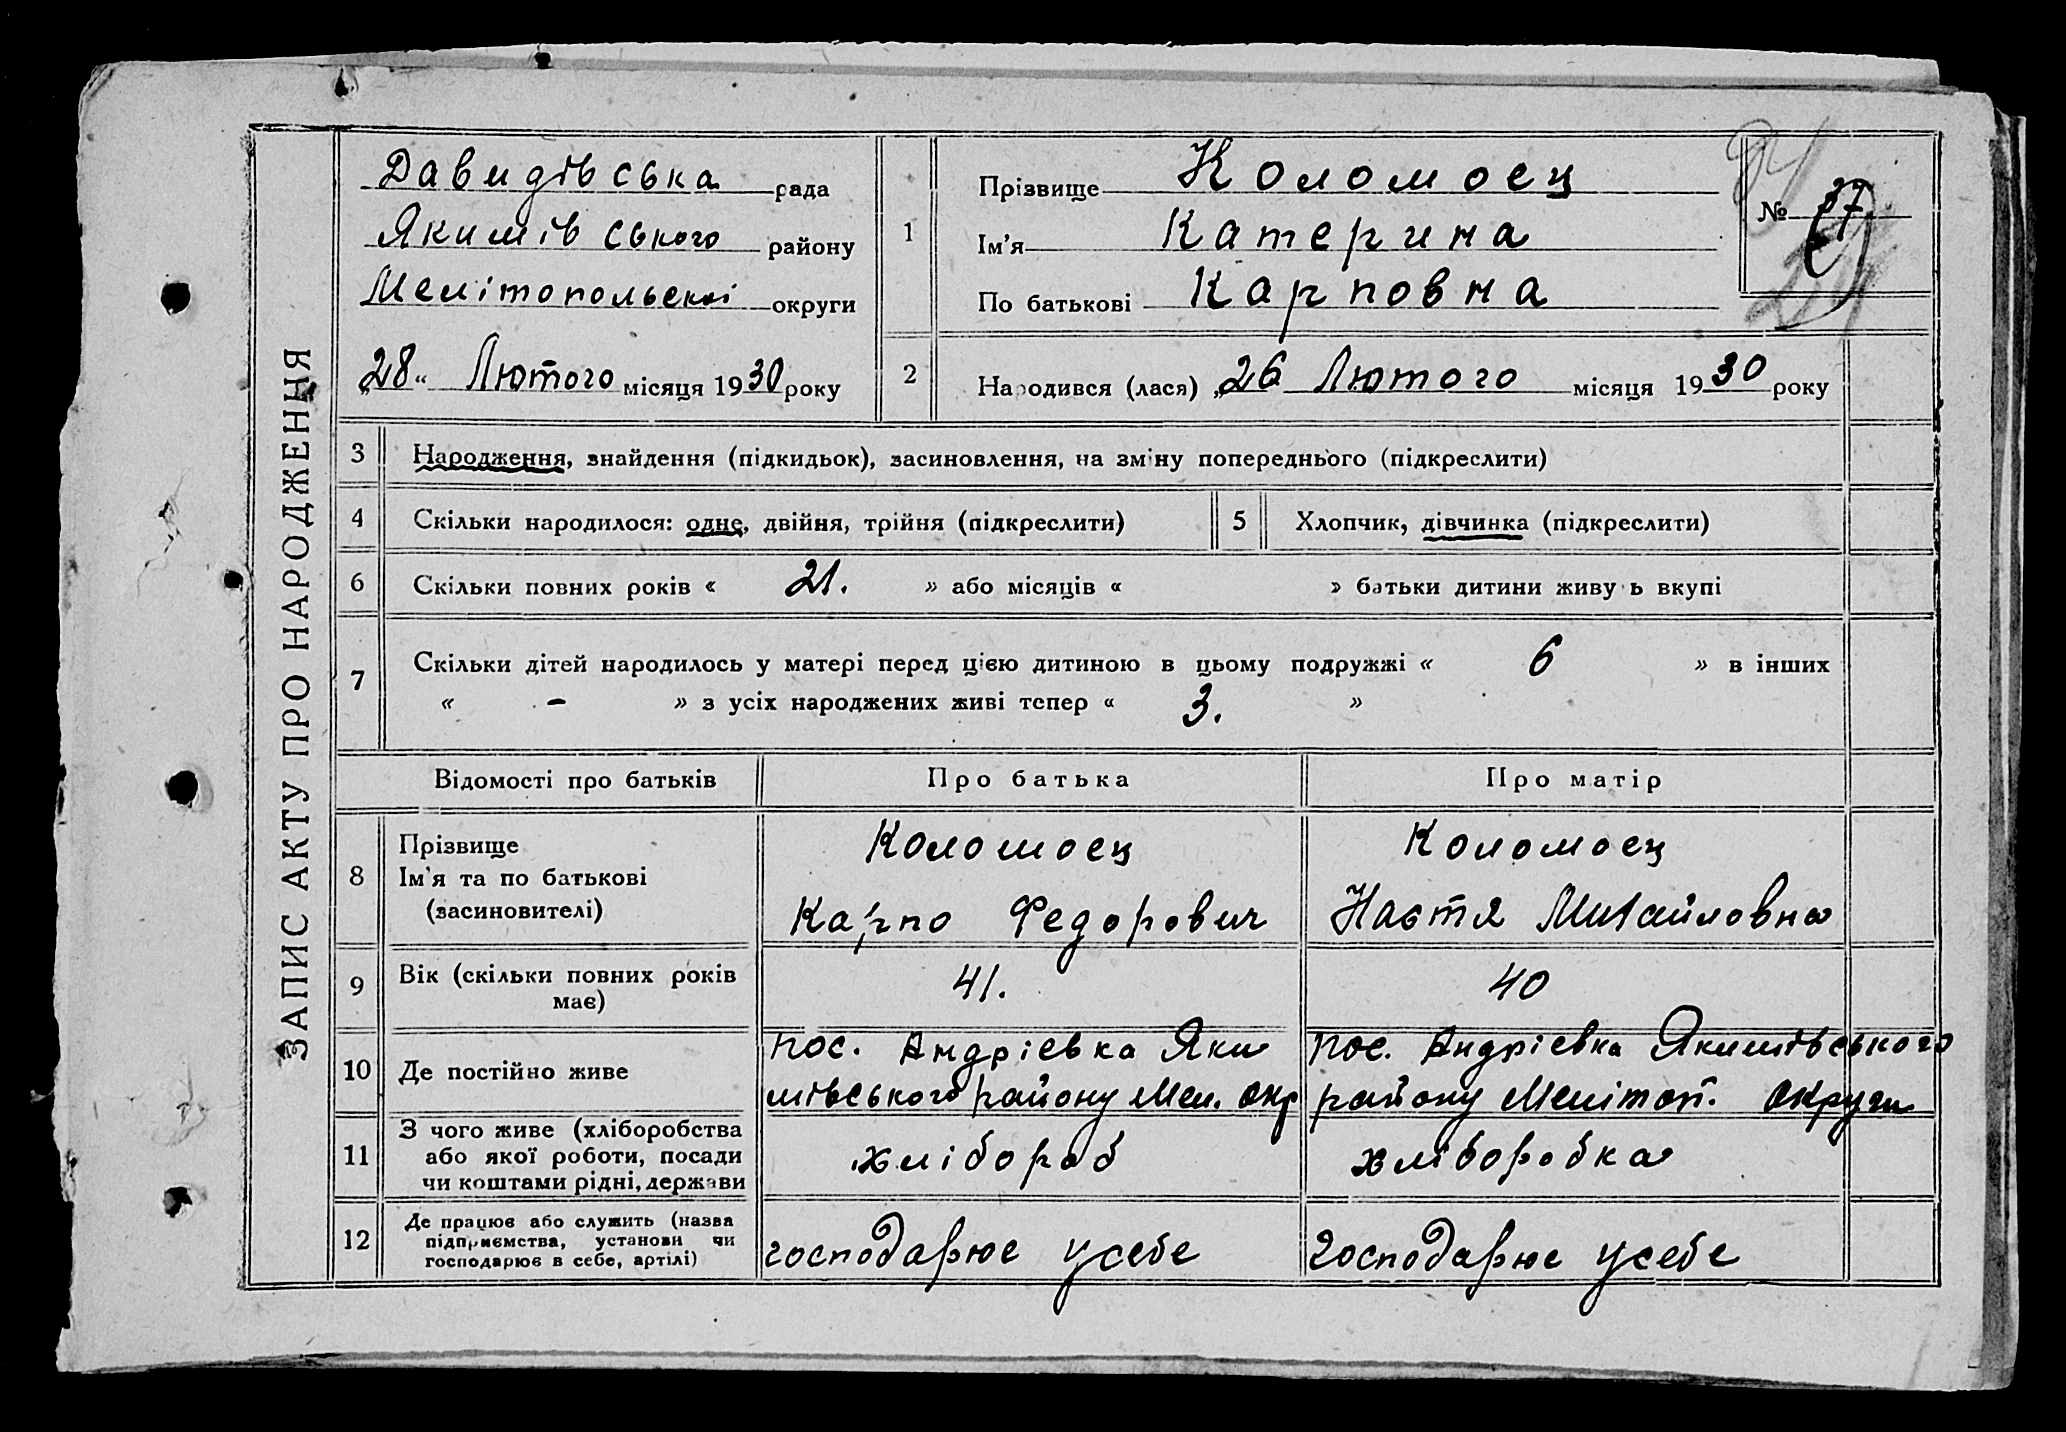 ЗАПИС АКТУ ПРО НАРОДЖЕННЯ
Давидівська рада
Якимівського району
Мелітопольскої округи
„28“ Лютого місяця 1930 року
1
Прізвище Коломоец
Ім’я Катерина
По батькові Карповна
№ 27
2
Народився (лася) „26 Лютого місяця 1930 року
3 Народження, знайдення (підкидьок), засиновлення, на зміну попереднього (підкреслити)
4 Скільки народилося: одне, двійня, трійня (підкреслити) 5 Хлопчик, дівчинка (підкреслити)
6 Скільки повних років « 21. » або місяців « » батьки дитини живуть вкупі
7 Скільки дітей народилось у матері перед цією дитиною в цьому подружжі « 6 » в інших
« – » з усіх народжених живі тепер « 3. »
Відомості про батьків Про батька Про матір
8 Прізвище
Ім’я та по батькові
(засиновителі)
Коломоец
Карпо Федорович
Коломоец
Настя Михайловна
9 Вік (скільки повних років
має)
41.
40
10 Де постійно живе
пос. Андрієвка Яки
мівського району Мел. окр
пос. Андрієвка Якимівського
району Мелітоп. округи
11 З чого живе (хліборобства
або якої роботи, посади
чи коштами рідні, держави
хлібороб
хліборобка
12 Де працює або служить (назва
підприємства, установи чи
господарює в себе, артілі)
господарює усебе
господарює усебе